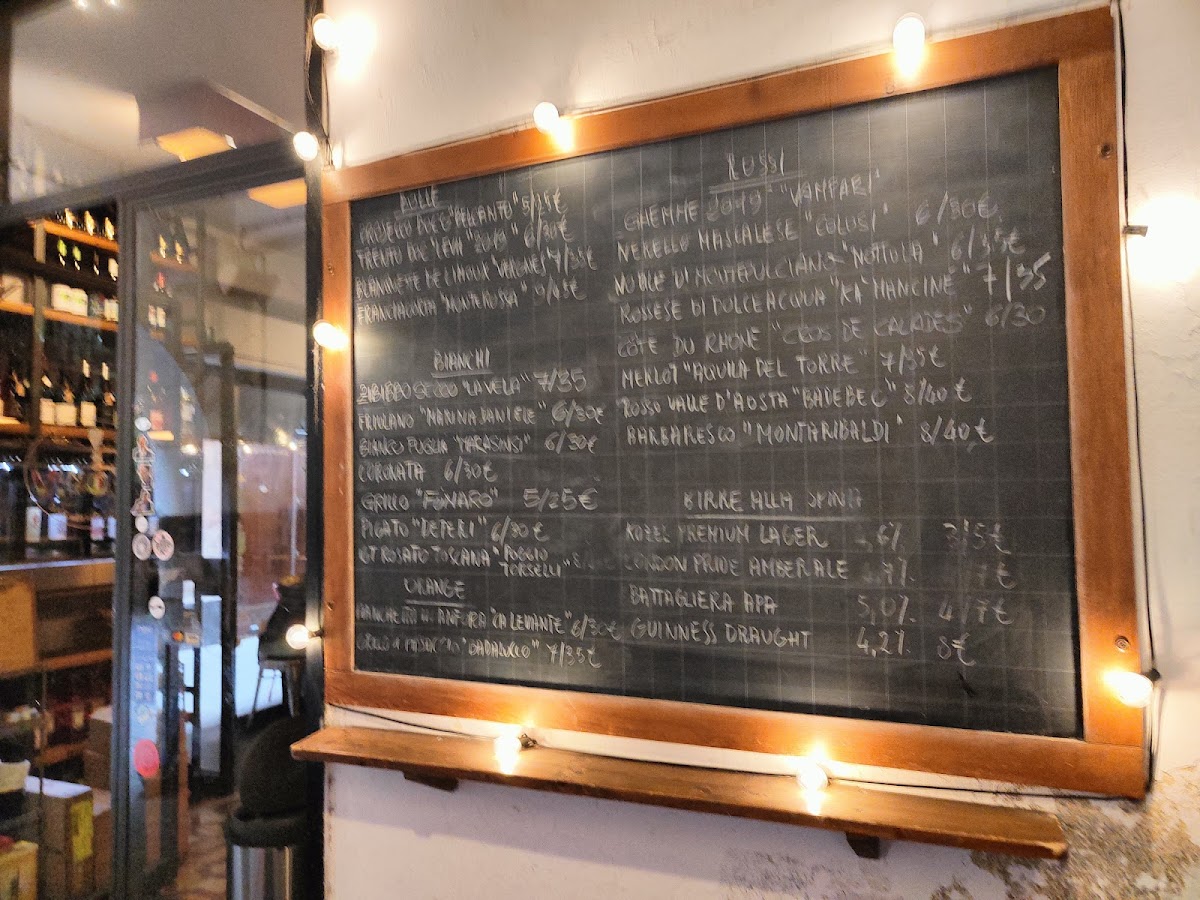 BOLLE
PROSECCO DOCG "BELCANTO" 5/25€
TRENTO DOC "LEVII" "2019" 6/30€
BLANQUETTE DE LIMOUX 7/35€
FRANCIACORTA "MONTEROSSA" 9/45€
BIANCHI
ZIBIBBO SECCO "LA VELA" 7/35
FRIULANO "MARINA DANIELI" 6/30€
BIANCO PUGLIA 6/30€
CORONATA 6/30€
GRILLO "FUNARO" 5/25€
PIGATO "DEPERI" 6/30€
IGT ROSATO TOSCANA "POGGIO
TORSELLI"
ORANGE
ANFORA "CA LEVANTE" 6/30€
"BADALUCCO" 7/35€
ROSSI
GHEMME 2019 "VAMPARI"
NERELLO MASCALESE "COLOSI" 6/30€
NOBILE DI MONTEPULCIANO "NOTTOLA" 6/35€
ROSSESE DI DOLCEACQUA "KA MANCINÉ" 7/35
CÔTE DU RHONE "CLOS DE CALADES" 6/30
MERLOT "AQUILA DEL TORRE" 7/35€
ROSSO VALLE D'AOSTA "BADEBEC" 8/40€
BARBARESCO "MONTARIBALDI" 8/40€
BIRRE ALLA SPINA
KOZEL PREMIUM LAGER 3/5€
LONDON PRIDE AMBER ALE
BATTAGLIERA APA 5,0% 4/7€
GUINNESS DRAUGHT 4,2% 8€